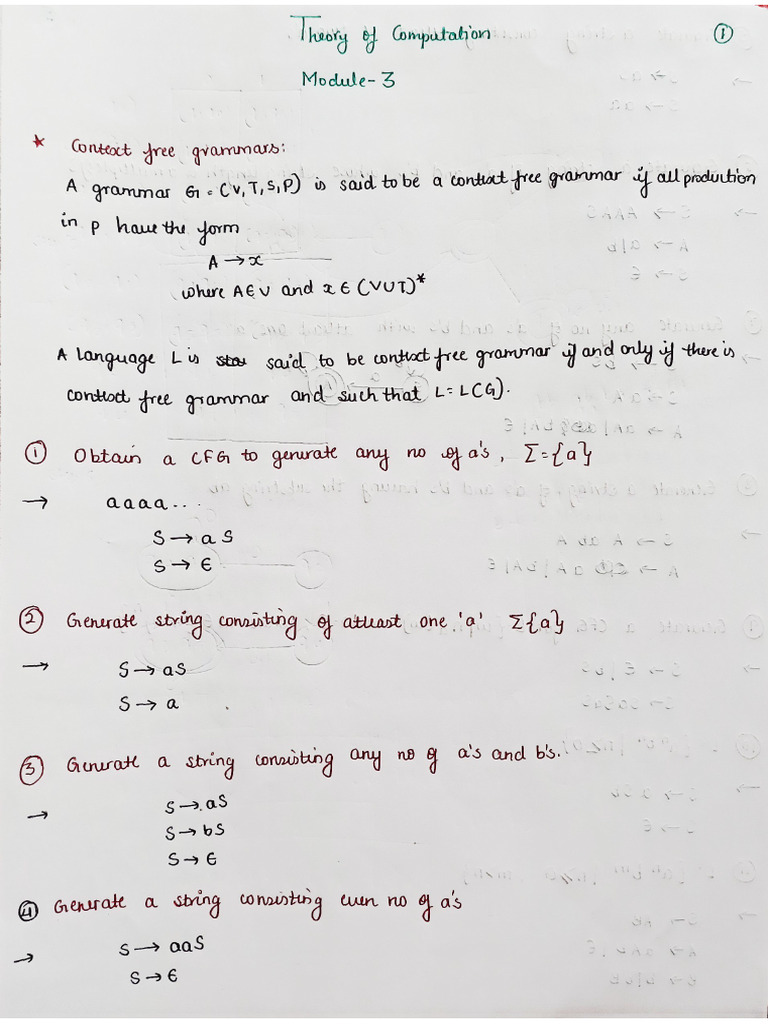 Theory of Computation
①
Module-3
* Context free grammars:
A grammar G = (V, T, S, P) is said to be a context free grammar if all production
in P have the form
A → x
where A ∈ V and x ∈ (V U T)*
A language L is said to be context free grammar if and only if there is
context free grammar and such that L = L(G).
① Obtain a CFG to generate any no of a's, Σ={a}
→ aaaa...
S → aS
S → ϵ
② Generate string consisting of atleast one 'a' Σ{a}
→ S → aS
S → a
③ Generate a string consisting any no of a's and b's.
→ S → aS
S → bS
S → ϵ
④ Generate a string consisting even no of a's
→ S → aaS
S → ϵ